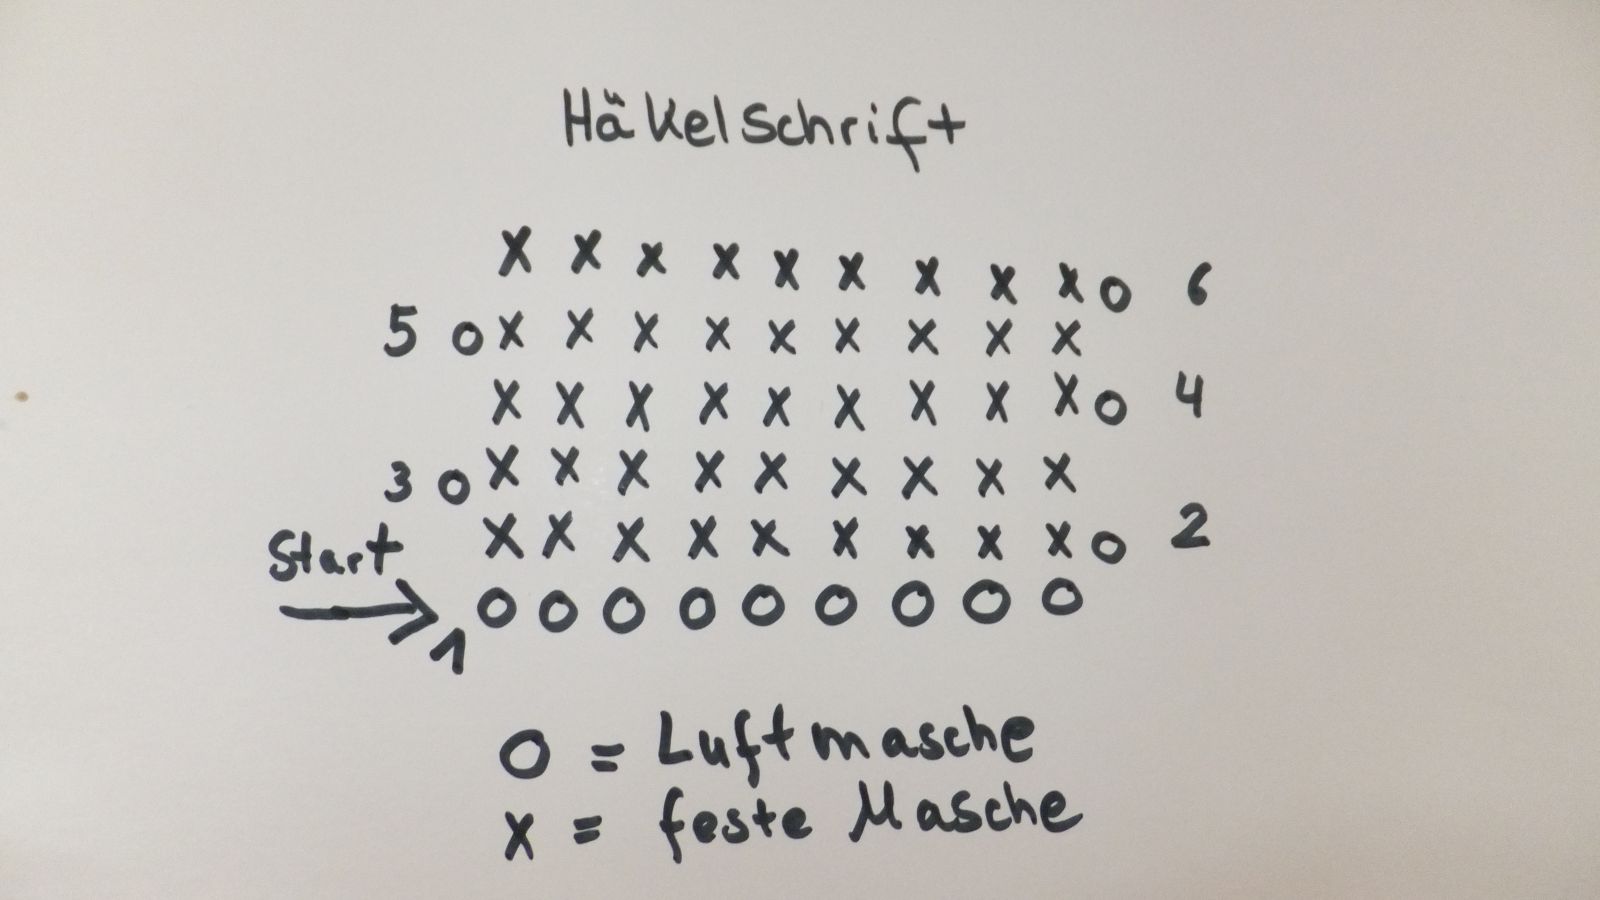 Häkelschrift
x x x x x x x x x o 6
5 o x x x x x x x x x
x x x x x x x x x o 4
3 o x x x x x x x x x
Start x x x x x x x x x o 2
→ 1 o o o o o o o o o
o = Luftmasche
x = feste Masche